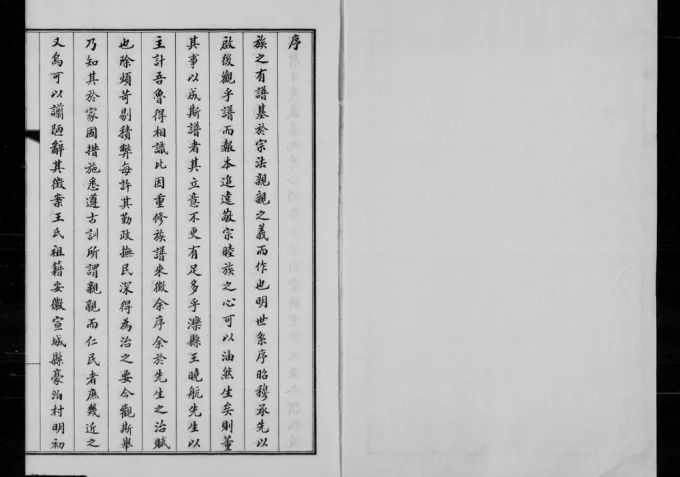 序
族之有譜基於宗法親親之義而作也明世系序昭穆承先以
啟後觀乎譜而報本追遠敬宗睦族之心可以油然生矣則董
其事以成斯譜者其立意不更有足多乎濼縣王曉航先生以
主計吾魯得相識比因重修族譜來徵余序余於先生之治賦
也除煩苛剔積弊每許其勤政撫民深得為治之要今觀斯舉
乃知其於家國措施悉遵古訓所謂親親而仁民者庶幾近之
又烏可以譾陋辭其徵案王氏祖籍安徽宣城縣豪泊村明初